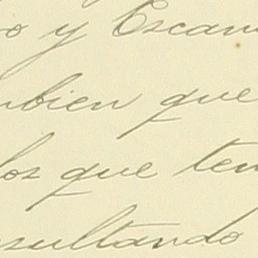 o y Escam
mbien que
los que ten
sultando